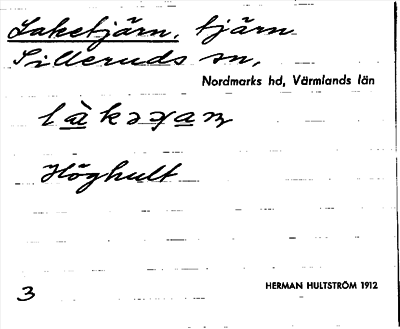 Laketjärn, tjärn
Silleruds sn,
Nordmarks hd, Värmlands län
Höghult
3
HERMAN HULTSTRÖM 1912